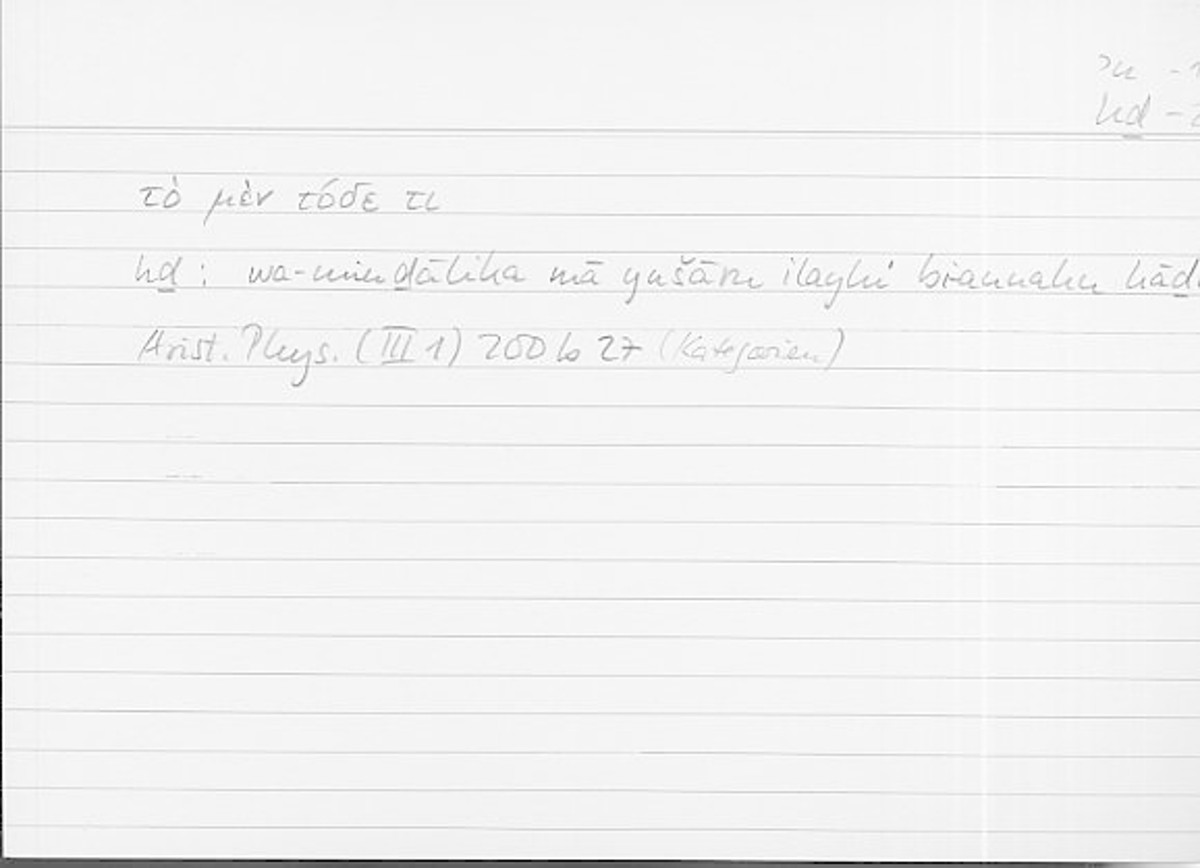 ʾn -1
hḏ -2
τὸ μὲν τόδε τι
hḏ: wa-min ḏālika mā yušāru ilayhi biannahu hāḏ
Arist. Phys. (III 1) 200 b 27 (Kategorien)